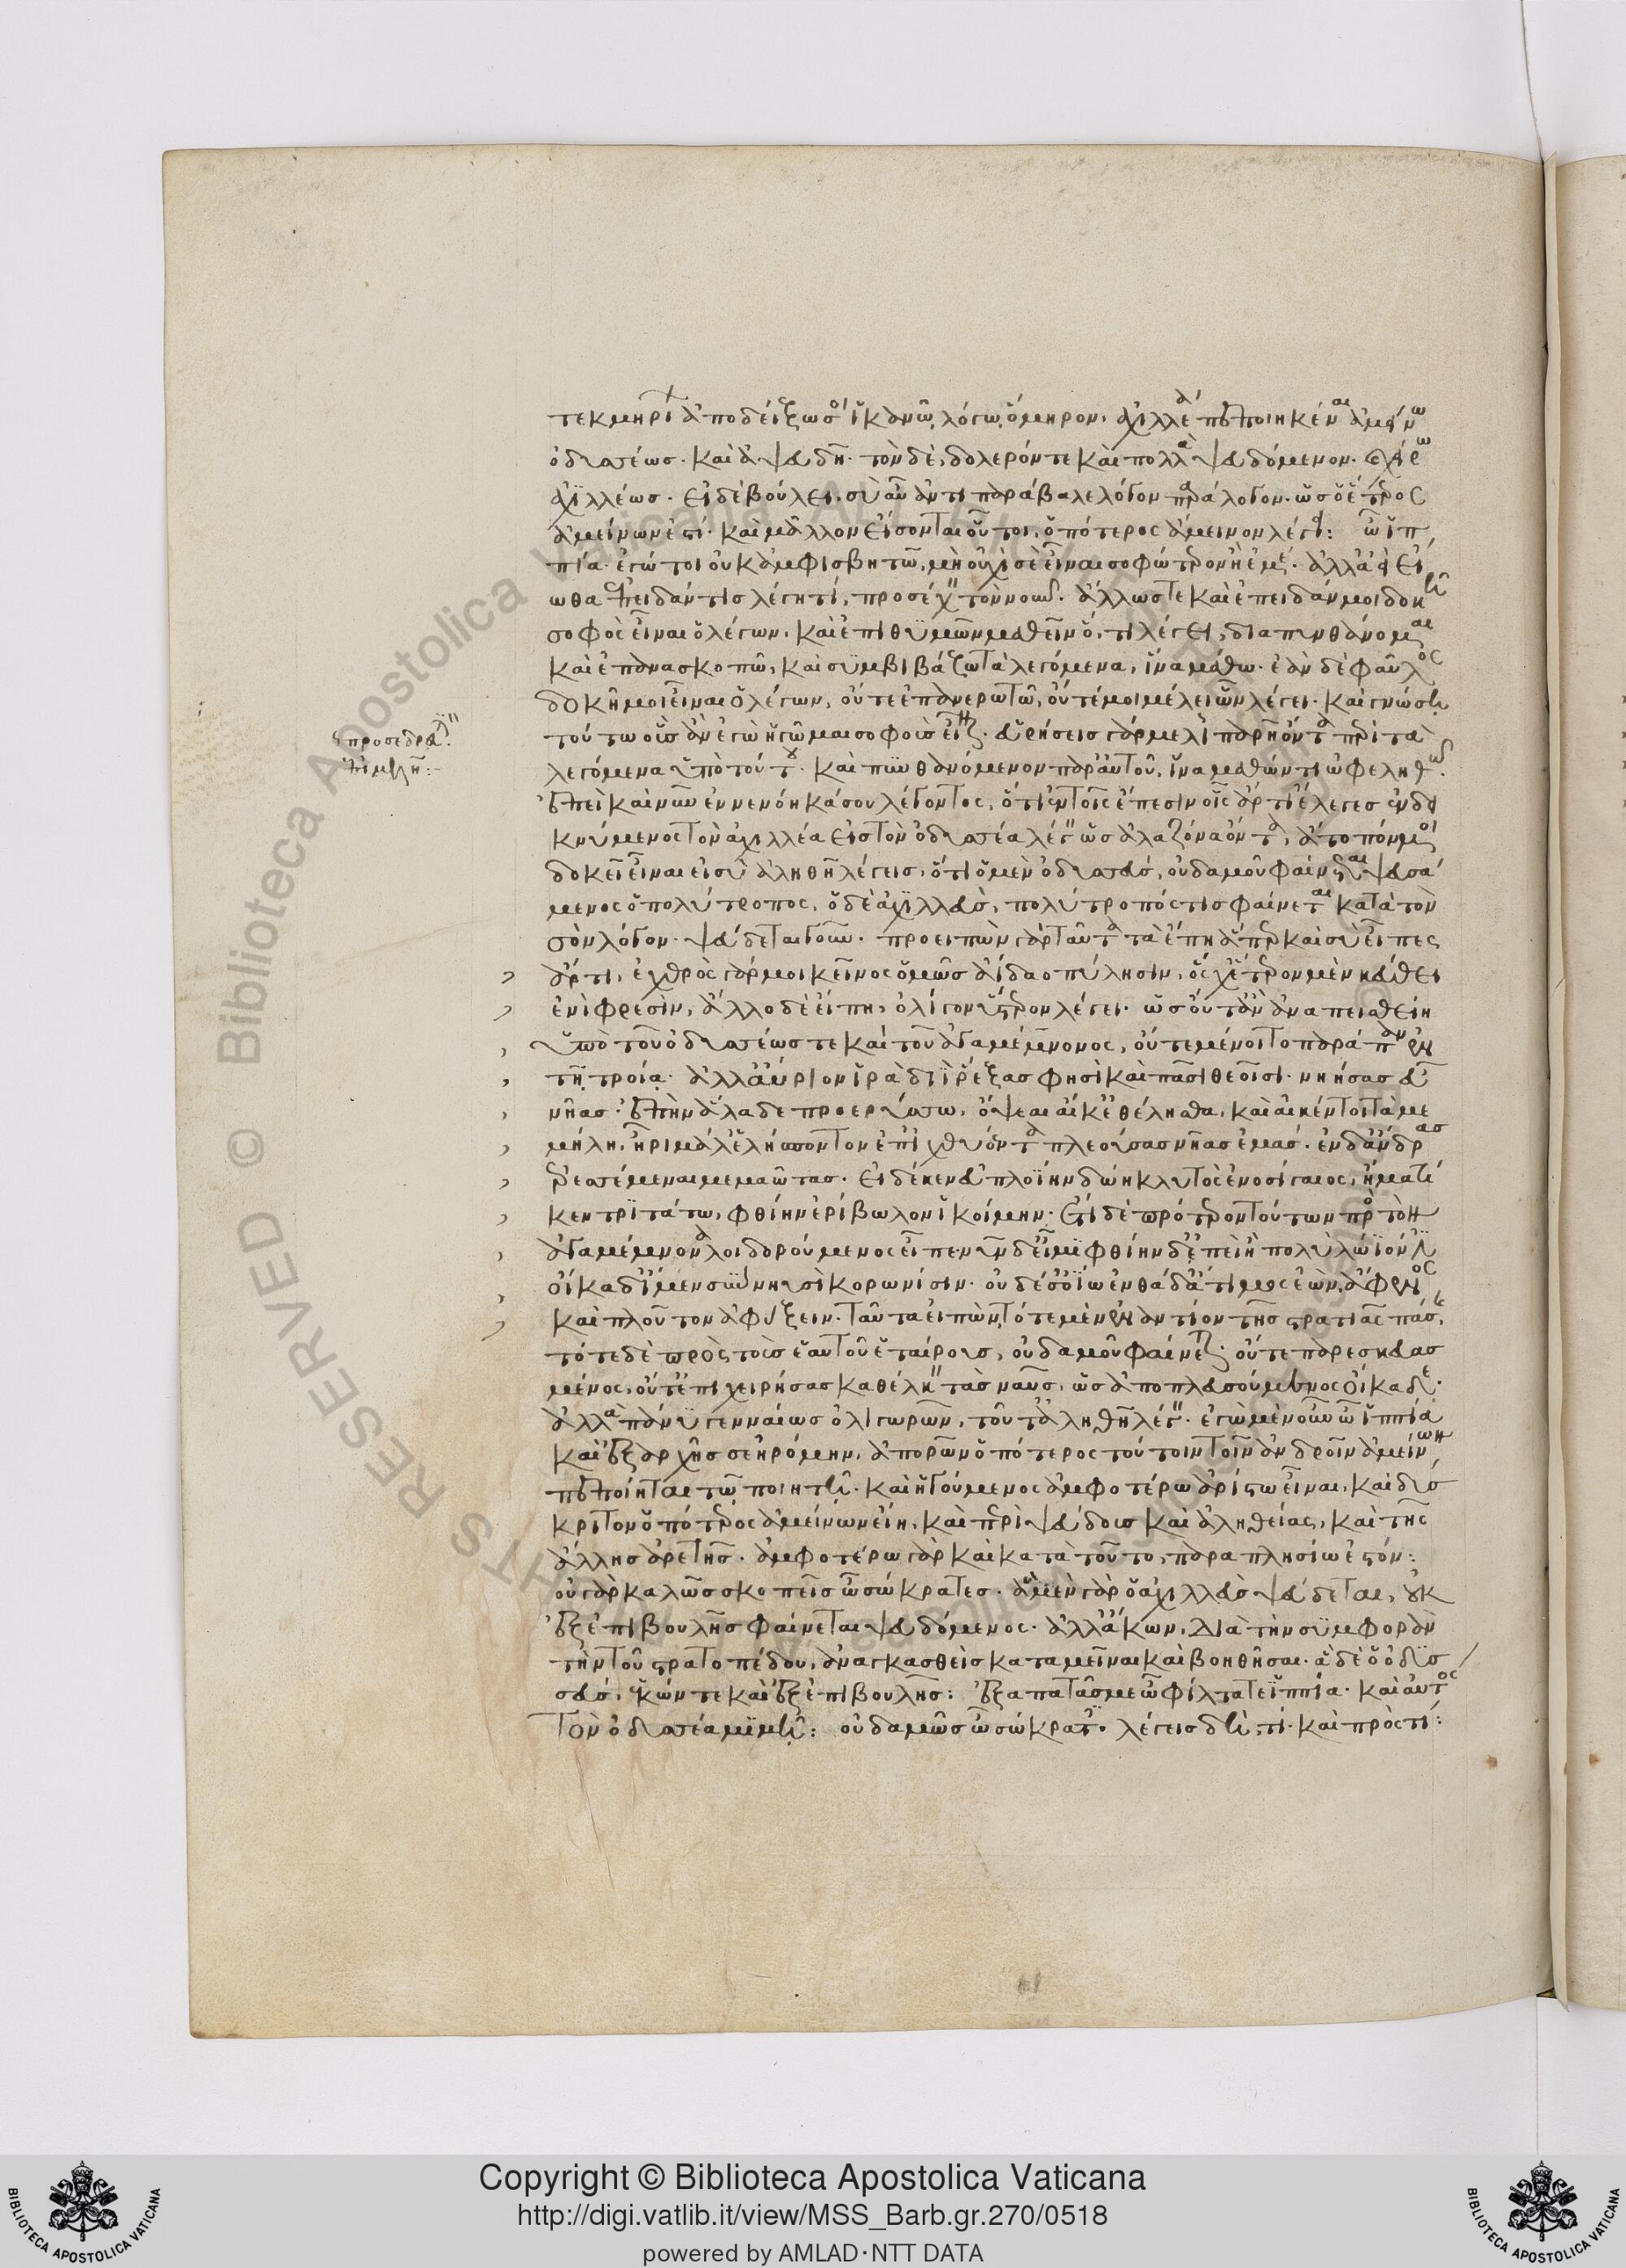 τεκμηρίοις ἀποδείξω σοι ἱκανῷ λόγῳ, ὅμηρον, ἀχιλλέα πεποιηκέναι ἀμείνω
ὀδυσσέως. καὶ ἀψευδῆ. τὸν δὲ, δολερόν τε καὶ πολλὰ ψευδόμενον. χείρω
ἀχιλλέως. εἰ δὲ βούλει, σὺ αὖ ἀντιπαράβαλε λόγον παρὰ λόγον. ὡς ὁ ἕτερος
ἀμείνων ἐστί. καὶ μᾶλλον εἴσονται οὗτοι, ὁπότερος ἄμεινον λέγει: ὦ ἱπ
πία. ἐγώ τοι οὐκ ἀμφισβητῶ, μὴ οὐχὶ σὲ εἶναι σοφώτερον ἢ ἐμέ. ἀλλ' ἀεὶ εἴ
ωθα ἐπειδάν τις λέγῃ τί, προσέχειν τὸν νοῦν. ἄλλως τε καὶ ἐπειδάν μοι δοκῇ
σοφὸς εἶναι ὁ λέγων. καὶ ἐπιθυμῶν μαθεῖν ὅ, τι λέγει, διαπυνθάνομαι
καὶ ἐπανασκοπῶ, καὶ συμβιβάζω τὰ λεγόμενα, ἵνα μάθω. ἐὰν δὲ φαῦλος
δοκῇ μοι εἶναι ὁ λέγων, οὔτε ἐπανερωτῶ, οὔτέ μοι μέλει ὧν λέγει. καὶ γνώσῃ
τούτῳ οὓς ἂν ἐγὼ ἡγῶμαι σοφοὺς εἶναι. εὑρήσεις γάρ με λιπαρῆ ὄντα περὶ τὰ
λεγόμενα ὑπὸ τούτου. καὶ πυνθανόμενον παρ' αὐτοῦ, ἵνα μαθών τι ὠφεληθῶ.
ἐπεὶ καὶ νῦν ἐννενόηκά σου λέγοντος, ὅτι ἐν τοῖς ἔπεσιν οἷς ἄρτι ἔλεγες ἐνδει
κνύμενος τὸν ἀχιλλέα εἰς τὸν ὀδυσσέα λέγειν ὡς ἀλαζόνα ὄντα, ἄτοπόν μοι
δοκεῖ εἶναι εἰ σὺ ἀληθῆ λέγεις, ὅτι ὁ μὲν ὀδυσσεύς, οὐδαμοῦ φαίνεται ψευσά
μενος ὁ πολύτροπος, ὁ δὲ ἀχιλλεὺς, πολύτροπός τις φαίνεται κατὰ τὸν
σὸν λόγον. ψεύδεται γοῦν. προειπὼν γὰρ ταῦτα τὰ ἔπη ἅπερ καὶ σὺ εἶπες
ἄρτι, ἐχθρὸς γάρ μοι κεῖνος ὁμῶς ἀίδαο πύλῃσιν, ὅς χ' ἕτερον μὲν κεύθει
ἐνὶ φρεσὶν, ἄλλο δὲ εἴπῃ, ὀλίγον ὕστερον λέγει. ὡς οὔτ' ἂν ἀναπεισθείη
ὑπὸ τοῦ ὀδυσσέως τε καὶ τοῦ ἀγαμέμνονος, οὔτε μένοι τοπαράπαν ἐν
τῇ τροίᾳ. ἀλλ' αὔριον ἱρὰ διὶ ῥέξας φησὶ καὶ πᾶσι θεοῖσι. νηήσας εὖ
νῆας. ἐπὴν ἅλαδε προερύσσω, ὄψεαι αἴ κ' ἐθέλῃσθα, καὶ αἴ κέν τοι τὰ με
μήλῃ, ἦρι μάλ' ἑλήσποντον ἐπ' ἰχθυόεντα πλεούσας νῆας ἐμάς. ἐν δ' ἄνδρας
ἐρεσσέμεναι μεμαῶτας. εἰ δέ κεν εὐπλοΐην δώῃ κλυτὸς ἐνοσίγαιος, ἤματί
κεν τριτάτῳ, φθίην ἐρίβωλον ἱκοίμην. ἔτι δὲ πρότερον τούτων πρὸς τὸν
ἀγαμέμνονα λοιδορούμενος εἶπεν νῦν δ' εἶμι φθίηνδ' ἐπεὶ ἦ πολὺ λώϊόν ἐστιν
οἴκαδ' ἴμεν σὺν νηυσὶ κορωνίσιν. οὐδέ σ' ὀΐω ἐνθάδ' ἄτιμος ἐὼν, ἄφενος
καὶ πλοῦτον ἀφύξειν. ταῦτα εἰπὼν, τότε μὲν ἐναντίον τῆς στρατιᾶς πάσης,
τότε δὲ πρὸς τοὺς ἑαυτοῦ ἑταίρους, οὐδαμοῦ φαίνεται. οὔτε παρεσκευασ
μένος, οὔτ' ἐπιχειρήσας καθέλκειν τὰς ναῦς, ὡς ἀποπλευσούμενος οἴκαδε.
ἀλλὰ πάνυ γενναίως ὀλιγωρῶν, τοῦ τἀληθῆ λέγειν. ἐγὼ μὲν οὖν ὦ ἱππία
καὶ ἐξ ἀρχῆς σε ἠρόμην, ἀπορῶν ὁπότερος τούτοιν τοῖν ἀνδροῖν ἀμείνων
πεποίηται τῷ ποιητῇ. καὶ ἡγούμενος ἀμφοτέρω ἀρίστω εἶναι, καὶ δύσ
κριτον ὁπότερος ἀμείνων εἴη, καὶ περὶ ψεύδους καὶ ἀληθείας, καὶ τῆς
ἄλλης ἀρετῆς. ἀμφοτέρω γὰρ καὶ κατὰ τοῦτο, παραπλησίω ἐστόν:
οὐ γὰρ καλῶς σκοπεῖς ὦ σώκρατες. ἃ μὲν γὰρ ὁ ἀχιλλεὺς ψεύδεται, οὐκ
ἐξ ἐπιβουλῆς φαίνεται ψευδόμενος. ἀλλ' ἄκων, διὰ τὴν συμφορὰν
τὴν τοῦ στρατοπέδου, ἀναγκασθεὶς καταμεῖναι καὶ βοηθῆσαι. ἃ δὲ ὁ ὀδυσ
σεύς, ἑκών τε καὶ ἐξ ἐπιβουλῆς: ἐξαπατᾷς με ὦ φίλτατε ἱππία. καὶ αὐτὸς
τὸν ὀδυσσέα μιμῇ: οὐδαμῶς ὦ σώκρατες. λέγεις δὴ, τί. καὶ πρὸς τί: